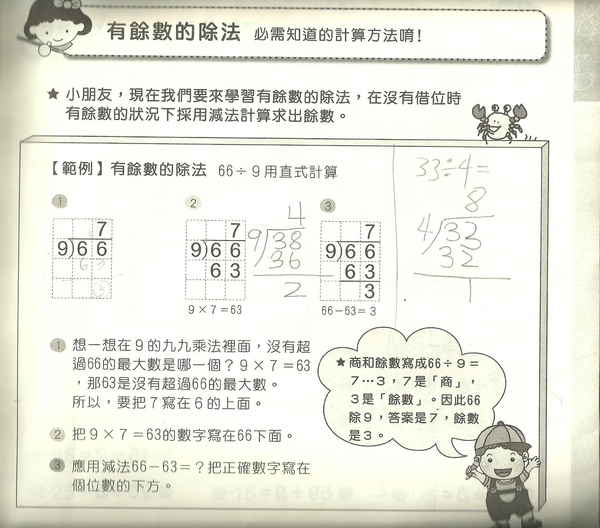 有餘數的除法 必需知道的計算方法唷!
★ 小朋友,現在我們要來學習有餘數的除法,在沒有借位時
有餘數的狀況下採用減法計算求出餘數。
【範例】有餘數的除法 66÷9用直式計算
33÷4=
8
4)33
32
1
1
7
9)66
63
3
2
7
9)66
63
9×7=63
4
9)38
36
2
3
7
9)66
63
3
66-63=3
1 想一想在9的九九乘法裡面,沒有超
過66的最大數是哪一個?9×7=63
,那63是沒有超過66的最大數。
所以,要把7寫在6的上面。
2 把9×7=63的數字寫在66下面。
3 應用減法66-63=?把正確數字寫在
個位數的下方。
★商和餘數寫成66÷9=
7…3,7是「商」,
3是「餘數」。因此66
除9,答案是7,餘數
是3。